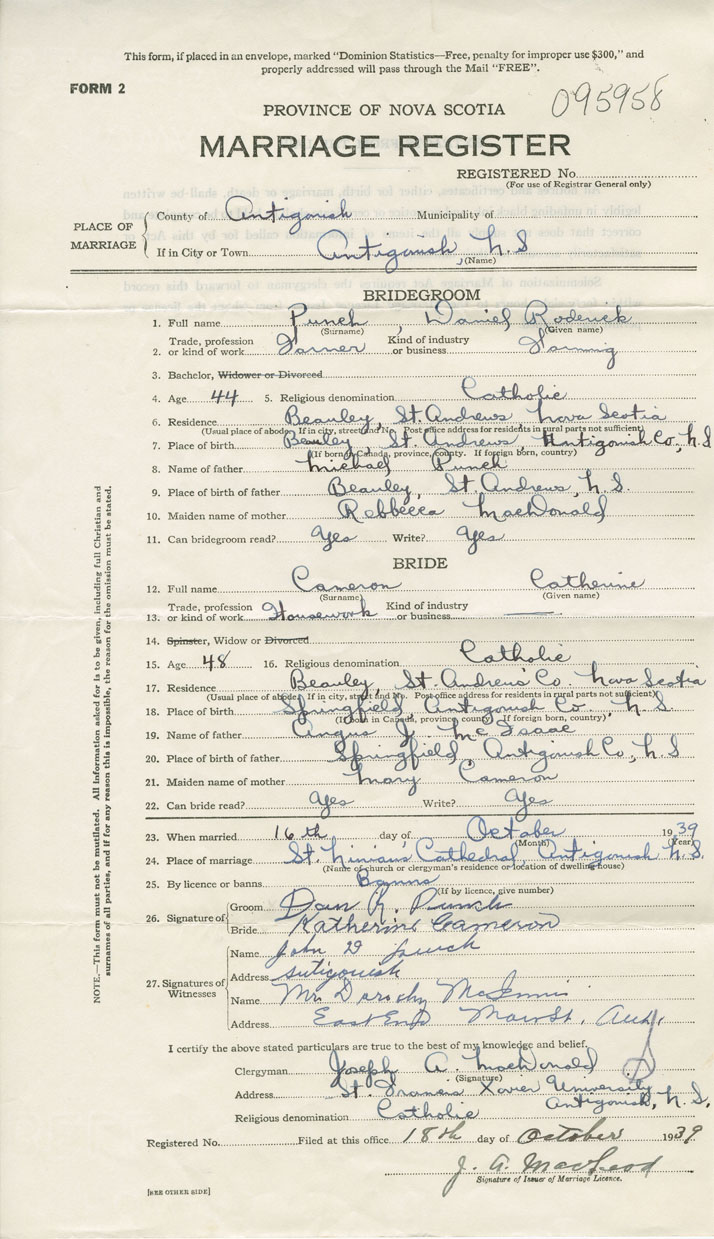 This form, if placed in an envelope, marked "Dominion Statistics—Free, penalty for improper use $300," and
properly addressed will pass through the Mail "FREE".
FORM 2
095958
PROVINCE OF NOVA SCOTIA
MARRIAGE REGISTER
REGISTERED No.
(For use of Registrar General only)
PLACE OF MARRIAGE
County of Antigonish Municipality of
If in City or Town Antigonish N.S
(Name)
BRIDEGROOM
1. Full name Punch, Daniel Roderick
(Surname) (Given name)
2. Trade, profession or kind of work Farmer Kind of industry or business Farming
3. Bachelor, Widower or Divorced
4. Age 44 5. Religious denomination Catholic
6. Residence Beauley, St. Andrews Nova Scotia
(Usual place of abode. If in city, street and No. Post office address for residents in rural parts not sufficient)
7. Place of birth Beauley St. Andrews, Antigonish Co, N.S
(If born in Canada, province, county. If foreign born, country)
8. Name of father Michael Punch
9. Place of birth of father Beauley, St. Andrews, N.S.
10. Maiden name of mother Rebbecca MacDonald
11. Can bridegroom read? Yes Write? Yes
BRIDE
12. Full name Cameron Catherine
(Surname) (Given name)
13. Trade, profession or kind of work Housework Kind of industry or business —
14. Spinster, Widow or Divorced
15. Age 48 16. Religious denomination Catholic
17. Residence Beauley, St. Andrew's Co. Nova Scotia
(Usual place of abode. If in city, street and No. Post office address for residents in rural parts not sufficient)
18. Place of birth Springfield Antigonish Co. N.S.
(If born in Canada, province county. If foreign born, country)
19. Name of father Angus J. McIsaac
20. Place of birth of father Springfield, Antigonish Co, N.S
21. Maiden name of mother Mary Cameron
22. Can bride read? Yes Write? Yes
23. When married 16th day of October 1939
(Month) (Year)
24. Place of marriage St. Ninians Cathedral, Antigonish N.S.
(Name of church or clergyman's residence or location of dwelling house)
25. By licence or banns Banns
(If by licence, give number)
26. Signature of
Groom Dan R. Punch
Bride Katherine Cameron
27. Signatures of Witnesses
Name John D Punch
Address Antigonish
Name Mrs Dorothy McInnis
Address East End Main St. Ant.
I certify the above stated particulars are true to the best of my knowledge and belief.
Clergyman Joseph A. MacDonald
(Signature)
Address St. Francis Xavier University
Antigonish, N.S.
Religious denomination Catholic
Registered No. Filed at this office 18th day of October 1939
J. A. MacLeod
Signature of Issuer of Marriage Licence.
[SEE OTHER SIDE]
NOTE.—This form must not be mutilated. All information asked for is to be given, including full Christian and
surnames of all parties, and if for any reason this is impossible, the reason for the omission must be stated.